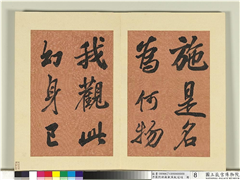 施是名
為何物
我觀此
幻身已
8
國立故宮博物院